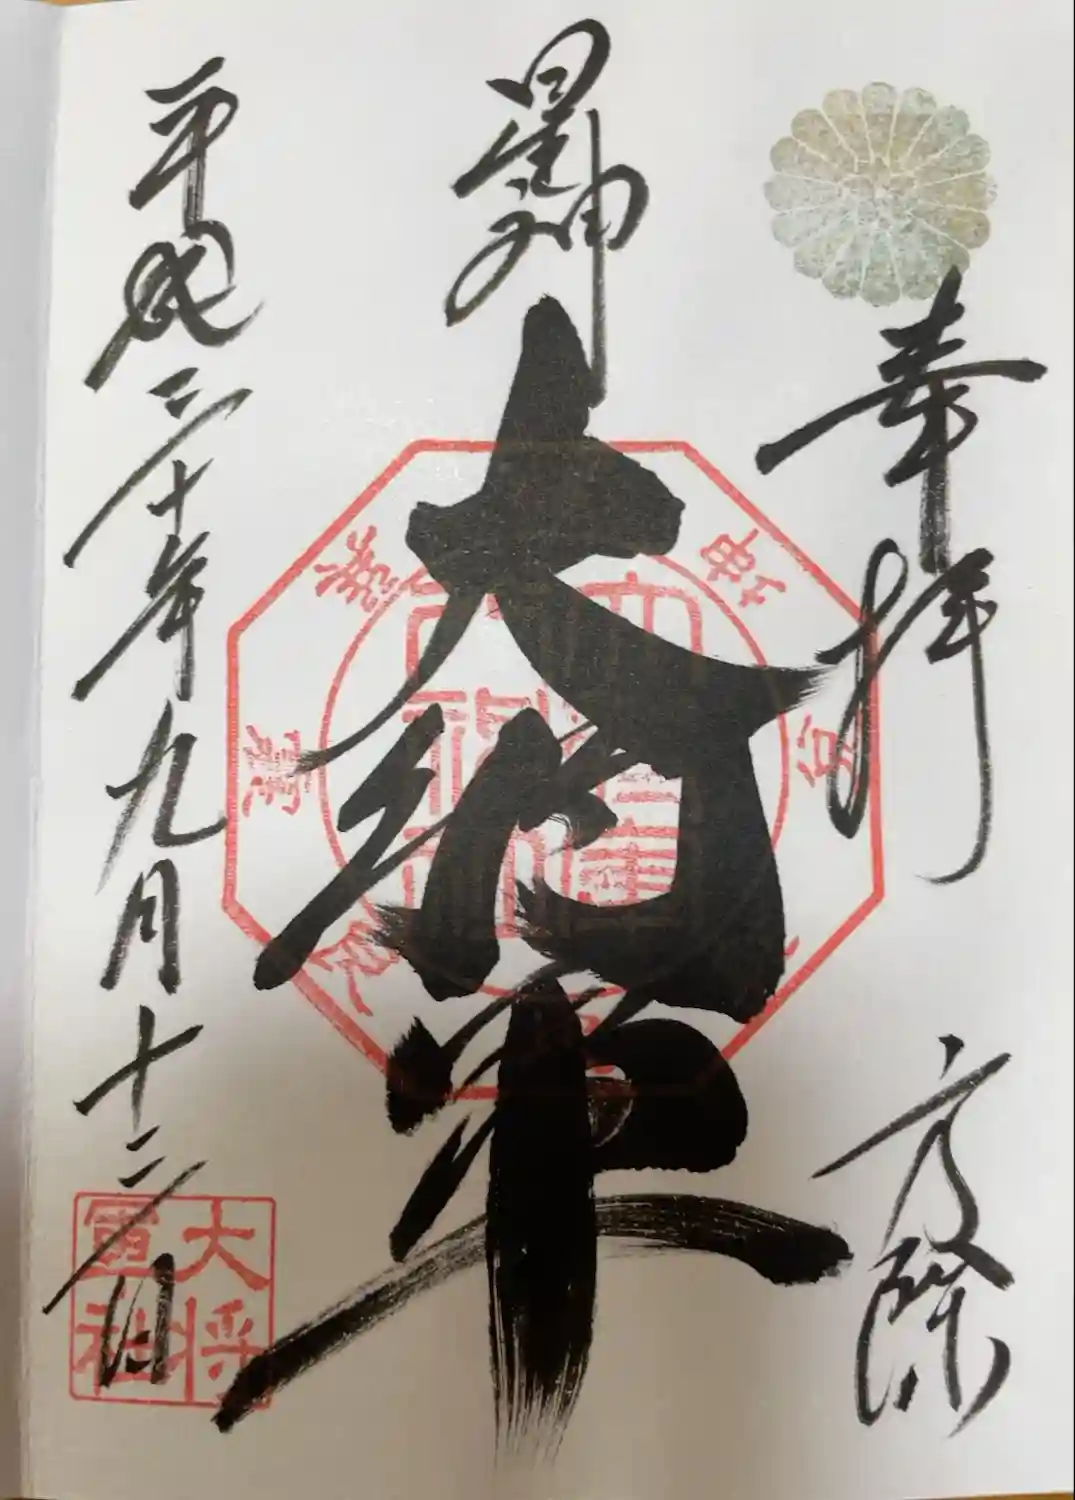 奉拝
方除
星神
大将軍
平成三十年九月十二日
大将軍社